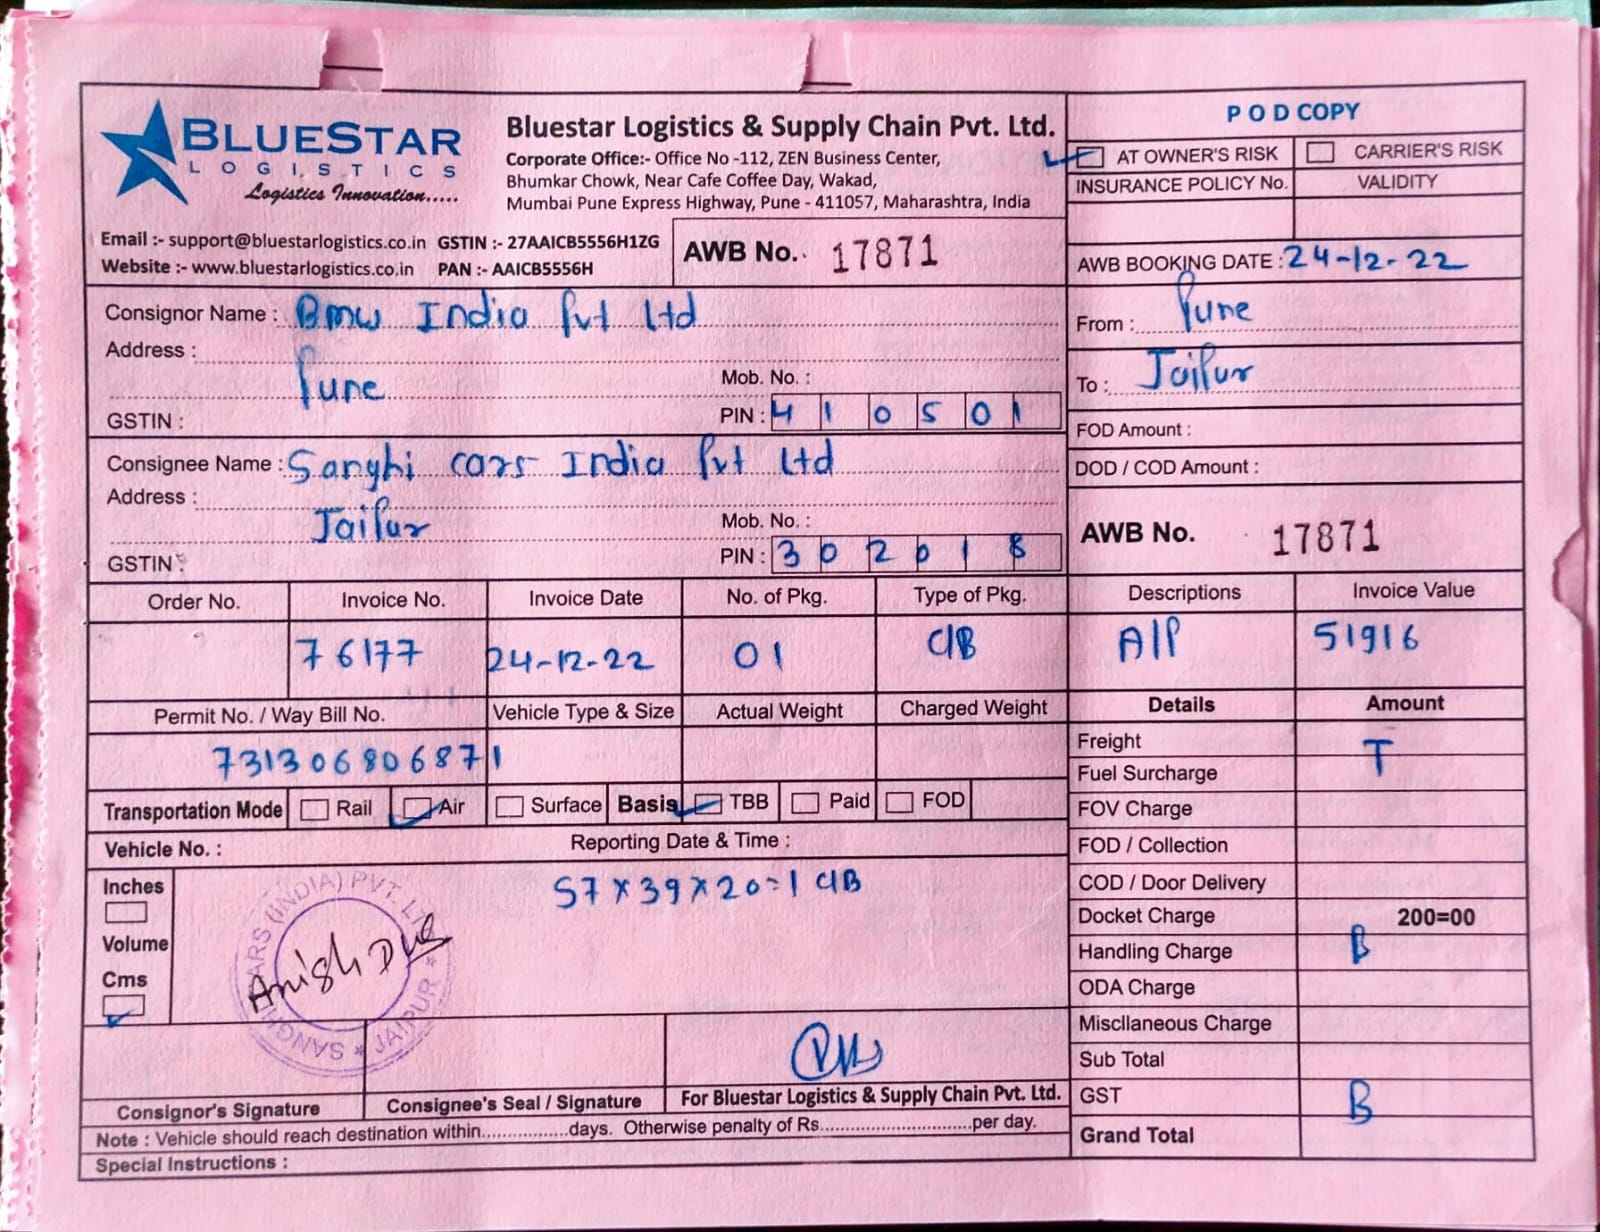 BLUESTAR
LOGISTICS
Logistics Innovation.....
Bluestar Logistics & Supply Chain Pvt. Ltd.
Corporate Office:- Office No -112, ZEN Business Center,
Bhumkar Chowk, Near Cafe Coffee Day, Wakad,
Mumbai Pune Express Highway, Pune - 411057, Maharashtra, India
Email :- support@bluestarlogistics.co.in GSTIN :- 27AAICB5556H1ZG
Website :- www.bluestarlogistics.co.in PAN :- AAICB5556H
AWB No. 17871
POD COPY
AT OWNER'S RISK CARRIER'S RISK
INSURANCE POLICY No. VALIDITY
AWB BOOKING DATE : 24-12-22
From : Pune
To : Jaipur
FOD Amount :
DOD / COD Amount :
AWB No. 17871
Consignor Name : Bmw India Pvt Ltd
Address :
Pune
Mob. No. :
GSTIN : PIN : 410501
Consignee Name : Sanghi cars India Pvt Ltd
Address :
Jaipur
Mob. No. :
GSTIN : PIN : 302018
Order No. Invoice No. Invoice Date No. of Pkg. Type of Pkg. Descriptions Invoice Value
76177 24-12-22 01 C/B A/P 51916
Permit No. / Way Bill No. Vehicle Type & Size Actual Weight Charged Weight
731306806871
Transportation Mode Rail Air Surface Basis TBB Paid FOD
Vehicle No. : Reporting Date & Time :
Inches
Volume
Cms
57×39×20=1 C/B
SANGHI CARS (INDIA) PVT. LTD. * JAIPUR *
Anish
Details Amount
Freight T
Fuel Surcharge
FOV Charge
FOD / Collection
COD / Door Delivery
Docket Charge 200=00
Handling Charge B
ODA Charge
Miscllaneous Charge
Sub Total
GST B
Grand Total
Consignor's Signature Consignee's Seal / Signature For Bluestar Logistics & Supply Chain Pvt. Ltd.
Note : Vehicle should reach destination within.................days. Otherwise penalty of Rs.............................per day.
Special Instructions :